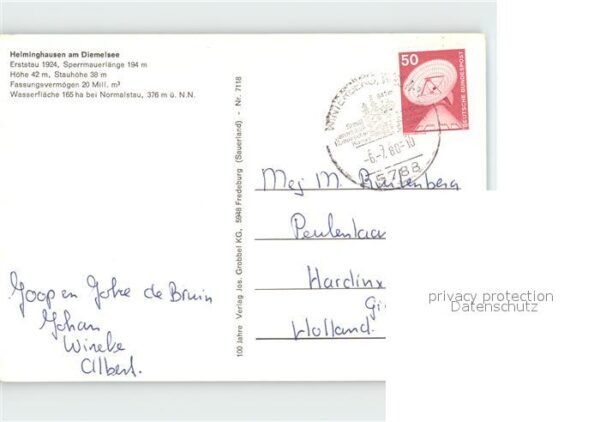 Helminghausen am Diemelsee
Erststau 1924, Sperrmauerlänge 194 m
Höhe 42 m, Stauhöhe 38 m
Fassungsvermögen 20 Mill. m³
Wasserfläche 165 ha bei Normalstau, 376 m ü. N.N.
100 Jahre Verlag Jos. Grobbel KG, 5948 Fredeburg (Sauerland) - Nr. 7118
50
DEUTSCHE BUNDESPOST
WINTERBERG,
-6.-7.80-10
5788
Mej M. Rautenberg
Hardinx
Gi
Holland.
privacy protection
Datenschutz
Joop en Joke de Bruin
Johan
Wineke
Albert.